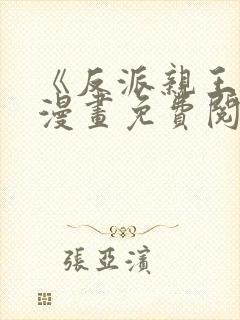 《反派親王
漫畫免費閱
張亞濱